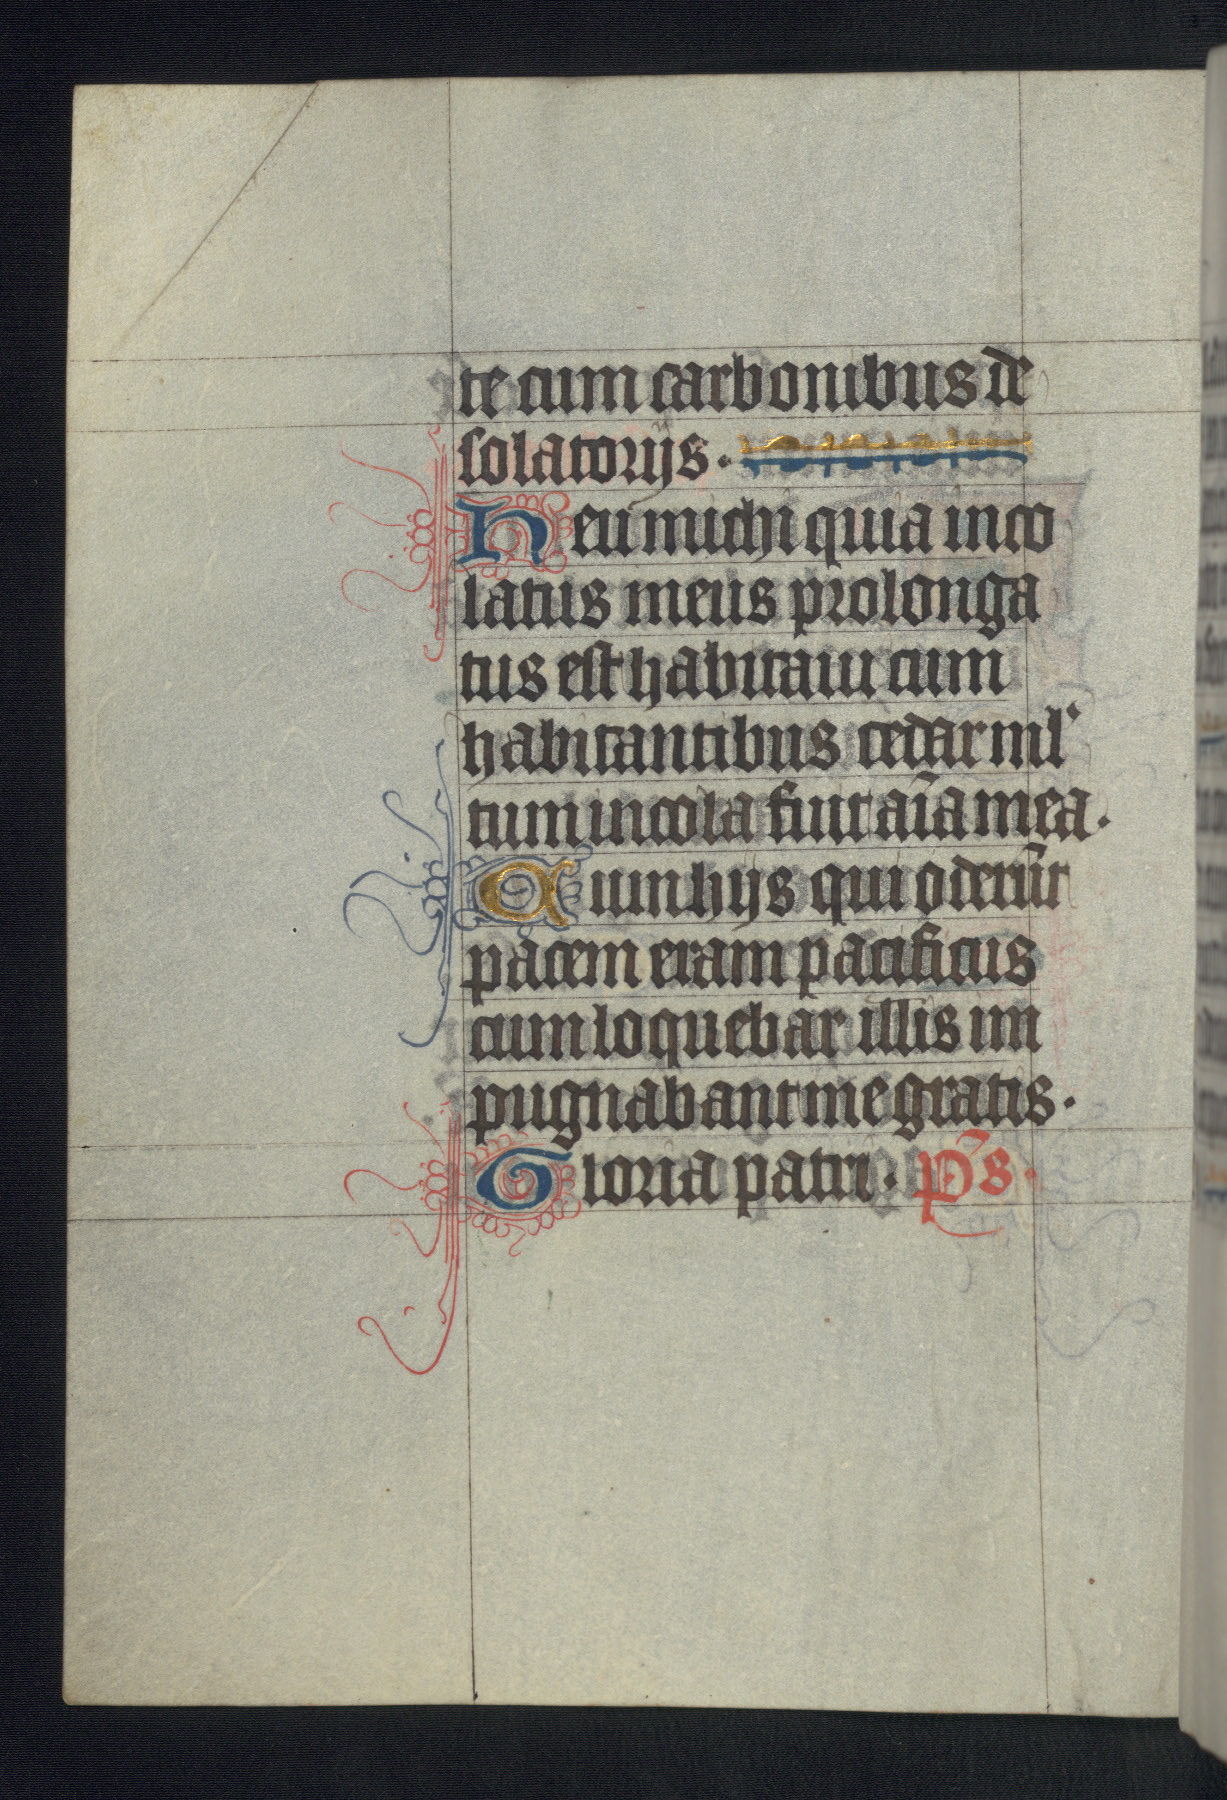 te cum carbonibus de
solatorijs.
Heu michi quia inco
latus meus prolonga
tus est habitaui cum
habitantibus cedar ml'
tum incola fuit aīa mea.
Cum hijs qui oderūt
pacem eram pacificus
cum loquebar illis im
pugnabant me gratis.
Gloria patri. p̄s.